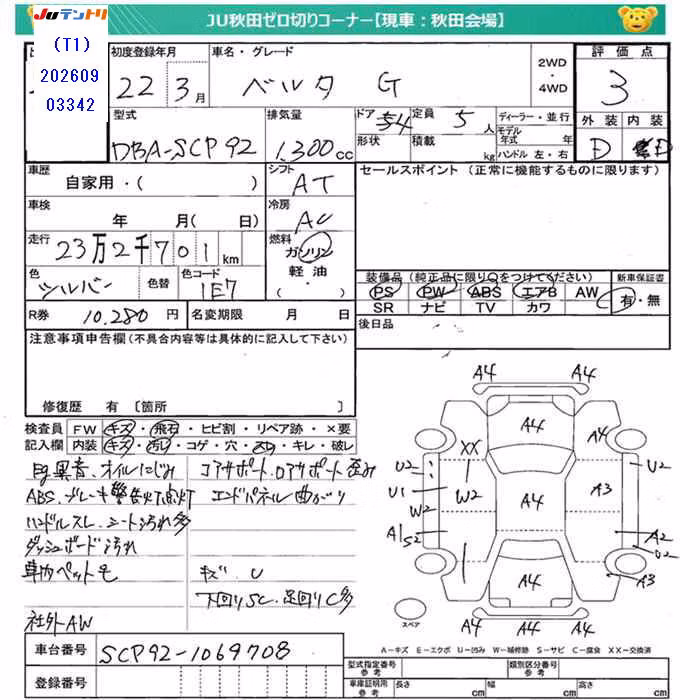 JUテントリ
JU秋田ゼロ切りコーナー【現車：秋田会場】
(T1)
202609
03342
初度登録年月
22年3月
車名・グレード
ベルタ G
2WD・4WD
評価点
3
外装 内装
D D
型式
DBA-SCP92
排気量
1,300cc
ドア 4
形状
定員 5人
積載 kg
ディーラー・並行
モデル年式 年
ハンドル 左・右
車歴
自家用・( )
シフト
AT
セールスポイント (正常に機能するものに限ります)
車検
年 月( 日)
冷房
AC
走行
23万2千701km
燃料
ガソリン
軽油・
( )
色
シルバー
色替
色コード
1E7
装備品(純正品に限り○をつけてください)
新車保証書
PS PW ABS エアB AW
SR ナビ TV カワ
有・無
R券 10,280円
名変期限 月 日
後日品
注意事項申告欄(不具合内容等は具体的に記入して下さい)
修復歴 有 〔箇所 〕
検査員記入欄
FW キズ・飛石・ヒビ割・リペア跡・×要
内装 キズ・汚レ・コゲ・穴・スレ・キレ・破レ
異音、オイルにじみ
ABS、ブレーキ警告灯点灯
ハンドルスレ、シート汚れ多
ダッシュボード汚れ
車内ペット毛
社外AW
コアサポート、ロアサポート歪み
エンドパネル曲がり
キズ、U
下回りSC、足回りC多
A4 A4
A4
A4
XX
U2
U2
U1
W2
W2
A4
A3
A1
S2
A2
U2
A3
A4
A4 A4 A4
スペア
A－キズ E－エクボ U－凹み W－補修跡 S－サビ C－腐食 XX－交換済
車台番号 SCP92-1069708
登録番号
型式指定番号 参考
類別区分番号 参考
車庫証明用 参考
長さ cm
幅 cm
高さ cm